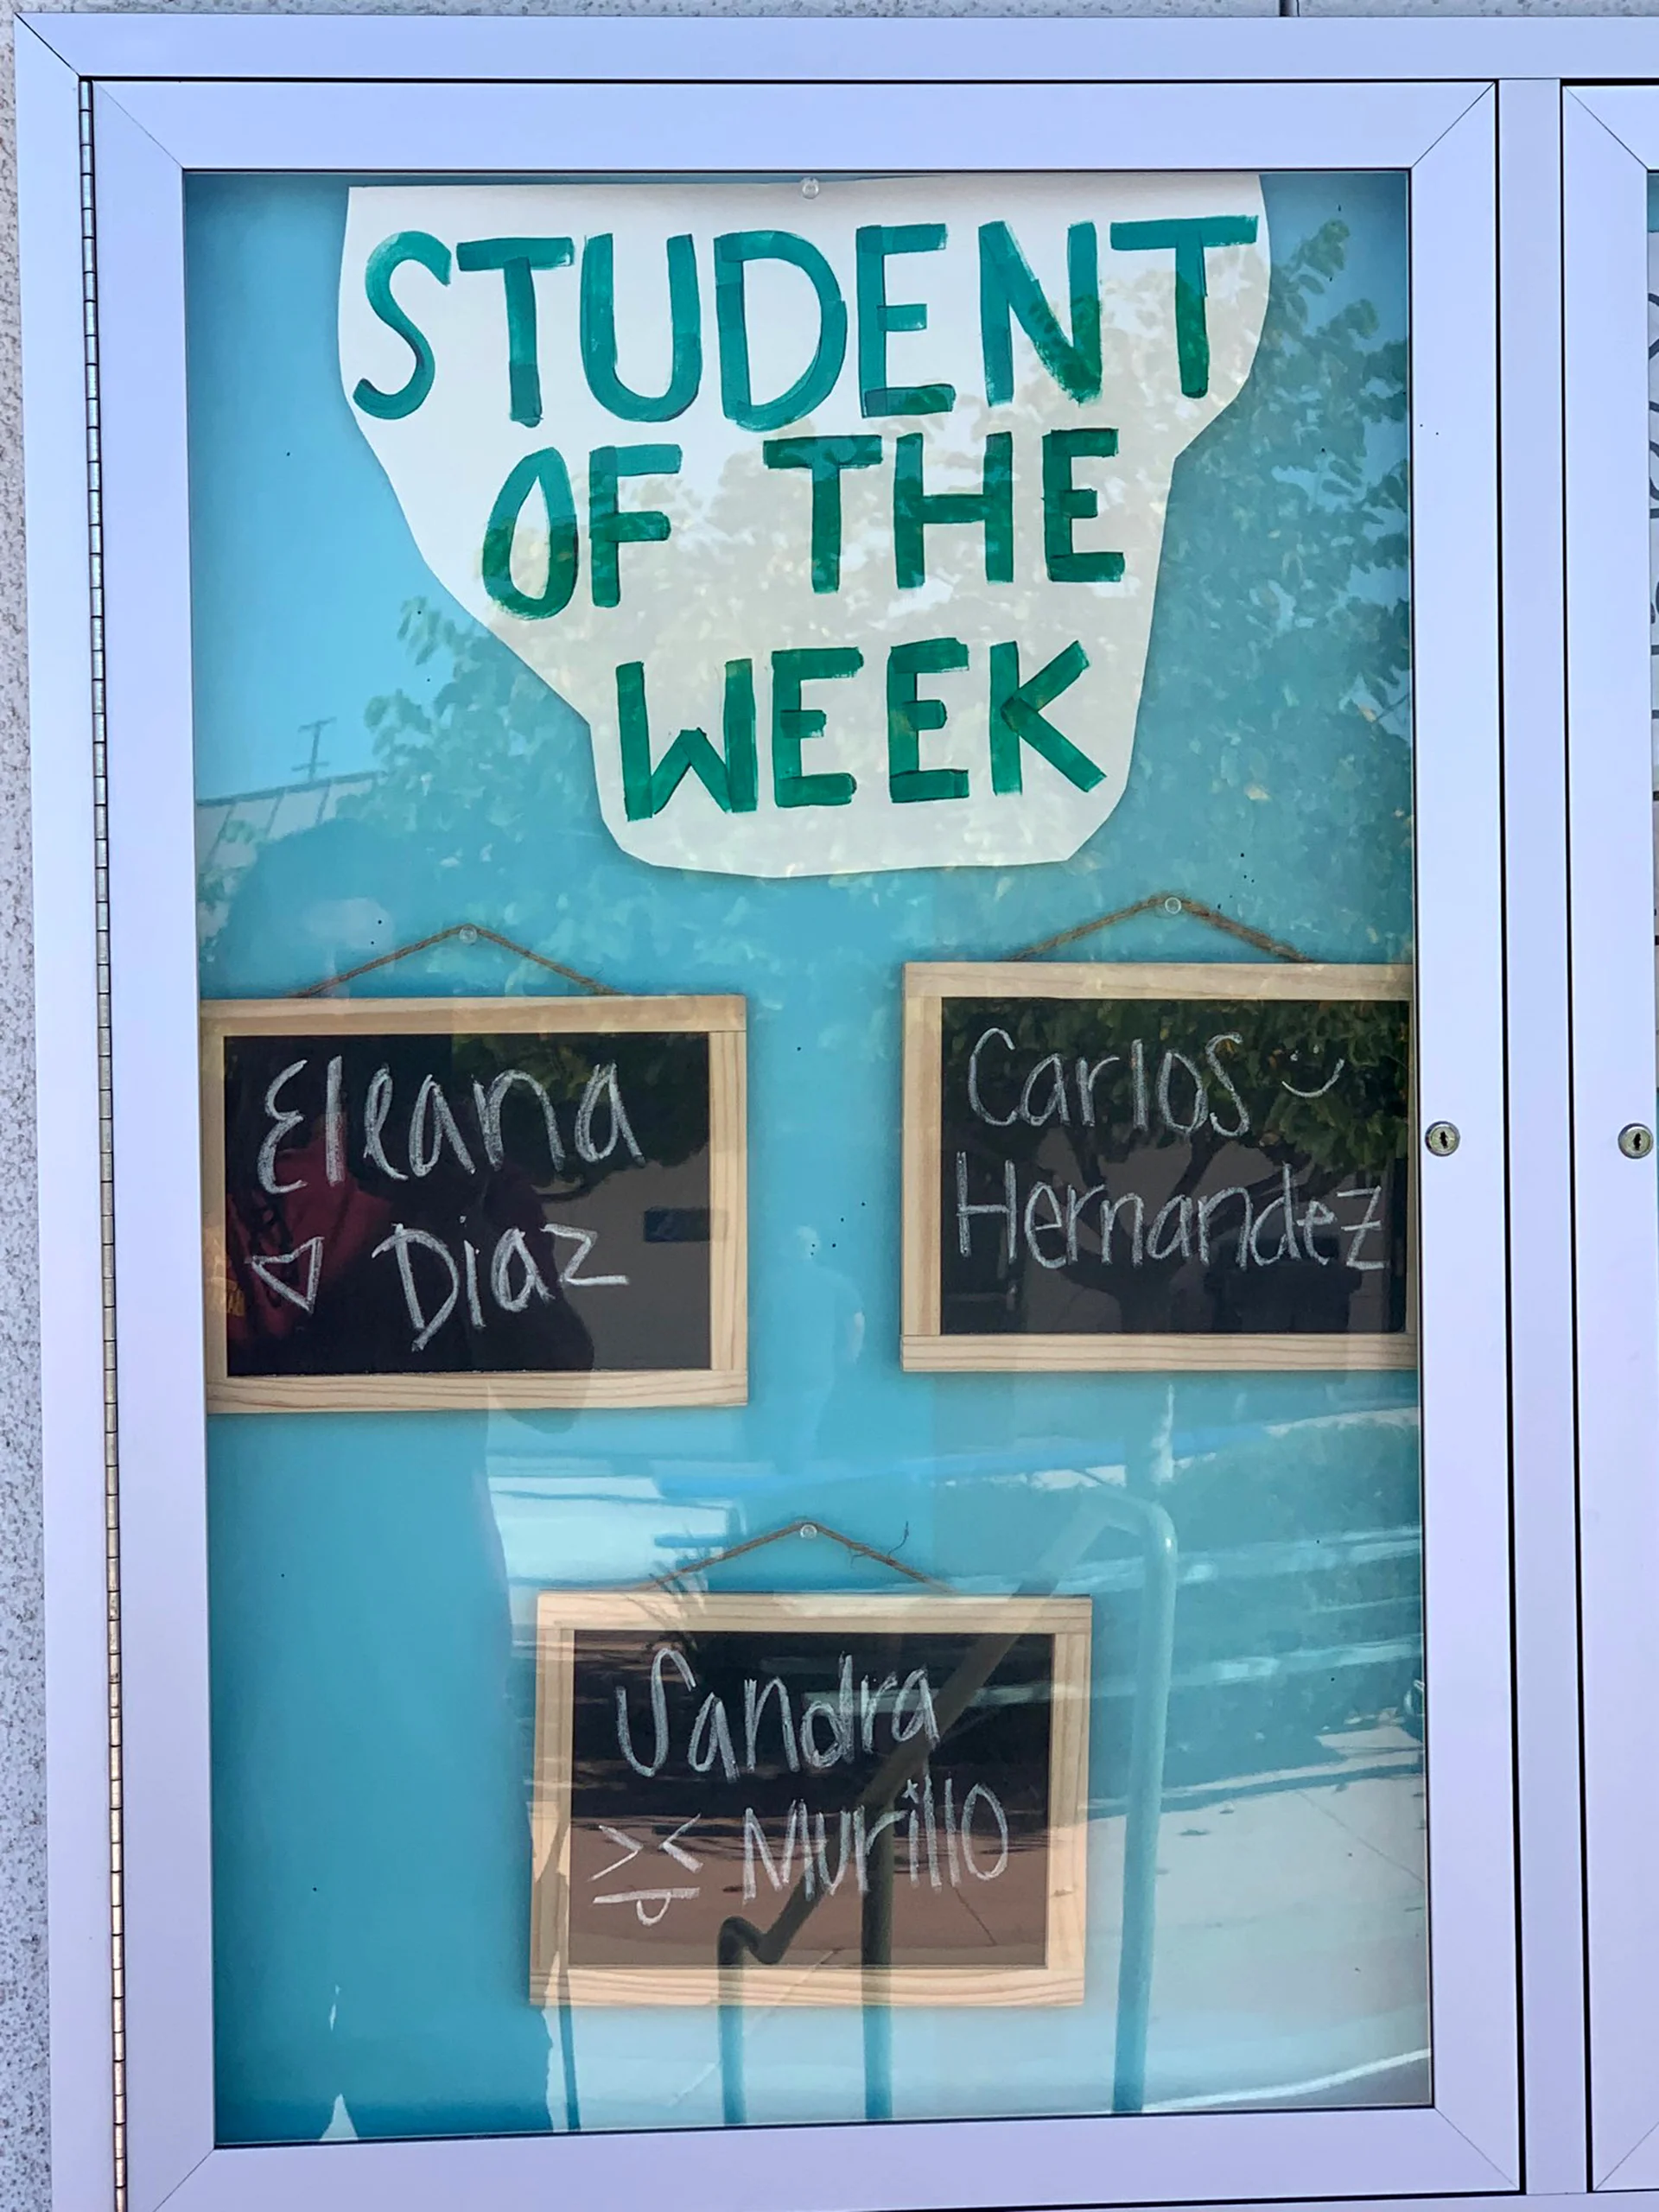 STUDENT
OF THE
WEEK
Eleana
Diaz
Carlos
Hernandez
Sandra
Murillo